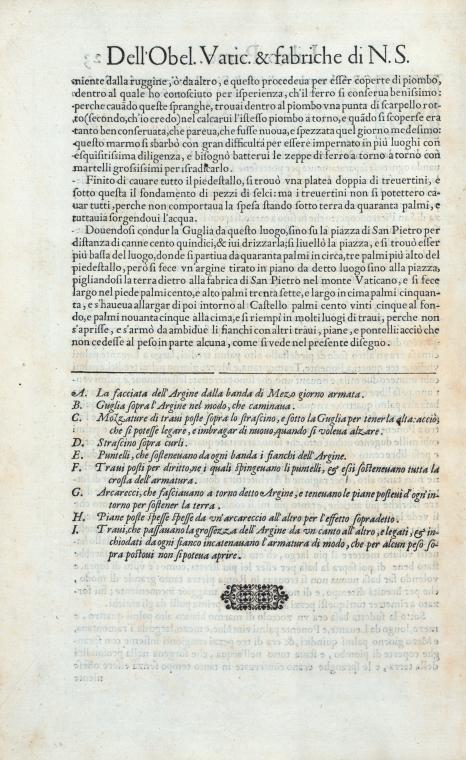 Dell'Obel. Vatic. & fabriche di N.S.
niente dalla ruggine, ò da altro, e questo procedeua per esser coperte di piombo,
dentro al quale ho conosciuto per isperienza, ch'il ferro si conserua benissimo:
perche cauãdo queste spranghe, trouai dentro al piombo vna punta di scarpello rot-
to (secondo, ch'io credo) nel calcarui l'istesso piombo a torno, e quãdo si scoperse era
tanto ben conseruata, che pareua, che fusse nuoua, e spezzata quel giorno medesimo:
questo marmo si sbarbò con gran difficultà per essere impernato in più luoghi con
esquisitissima diligenza, e bisognò batterui le zeppe di ferro a torno a torno con
martelli grosissimi per isradicarlo.
Finito di cauare tutto il piedestallo, si trouò vna platea doppia di treuertini, e
sotto questa il fondamento di pezzi di selci: ma i treuertini non si potettero ca-
uar tutti, perche non comportaua la spesa stando sotto terra da quaranta palmi, e
tuttauia sorgendoui l'acqua.
Douendosi condur la Guglia da questo luogo, sino su la piazza di San Pietro per
distanza di canne cento quindici, & iui drizzarla; si liuellò la piazza, e si trouò esser
più bassa del luogo, donde si partiua da quaranta palmi in circa, tre palmi più alto del
piedestallo, però si fece vn'argine tirato in piano da detto luogo sino alla piazza,
pigliandosi la terra dietro alla fabrica di San Pietro nel monte Vaticano, e si fece
largo nel piede palmi cento, e alto palmi trenta sette, e largo in cima palmi cinquan-
ta, e s'haueua allargar di poi intorno al Castello palmi cento vinti cinque al fon-
do, e palmi nouanta cinque alla cima, e si riempì in molti luogi di traui, perche non
s'aprisse, e s'armò da ambidue li fianchi con altri traui, piane, e pontelli: acciò che
non cedesse al peso in parte alcuna, come si vede nel presente disegno.
A. La facciata dell'Argine dalla banda di Mezo giorno armata.
B. Guglia sopra l'Argine nel modo, che caminaua.
C. Mozzature di traui poste sopra lo strascino, e sotto la Guglia per tener la alta: acciò,
che si potesse legare, e imbragar di nuouo, quando si voleua alzare.
D. Strascino sopra curli.
E. Puntelli, che sosteneuano da ogni banda i fianchi dell'Argine.
F. Traui posti per diritto, ne i quali spingeuano li puntelli, & essi sosteneuano tutta la
crosta dell'armatura.
G. Arcarecci, che fasciauano a torno detto Argine, e teneuano le piane posteui d'ogn'in-
torno per sostener la terra.
H. Piane poste spesse spesse da vn'arcareccio all'altro per l'effetto sopradetto.
I. Traui, che passauano la grossezza dell'Argine da vn canto all'altro, e legati, & in-
chiodati da ogni fianco incatenauano l'armatura di modo, che per alcun peso so-
pra postoui non si poteua aprire.